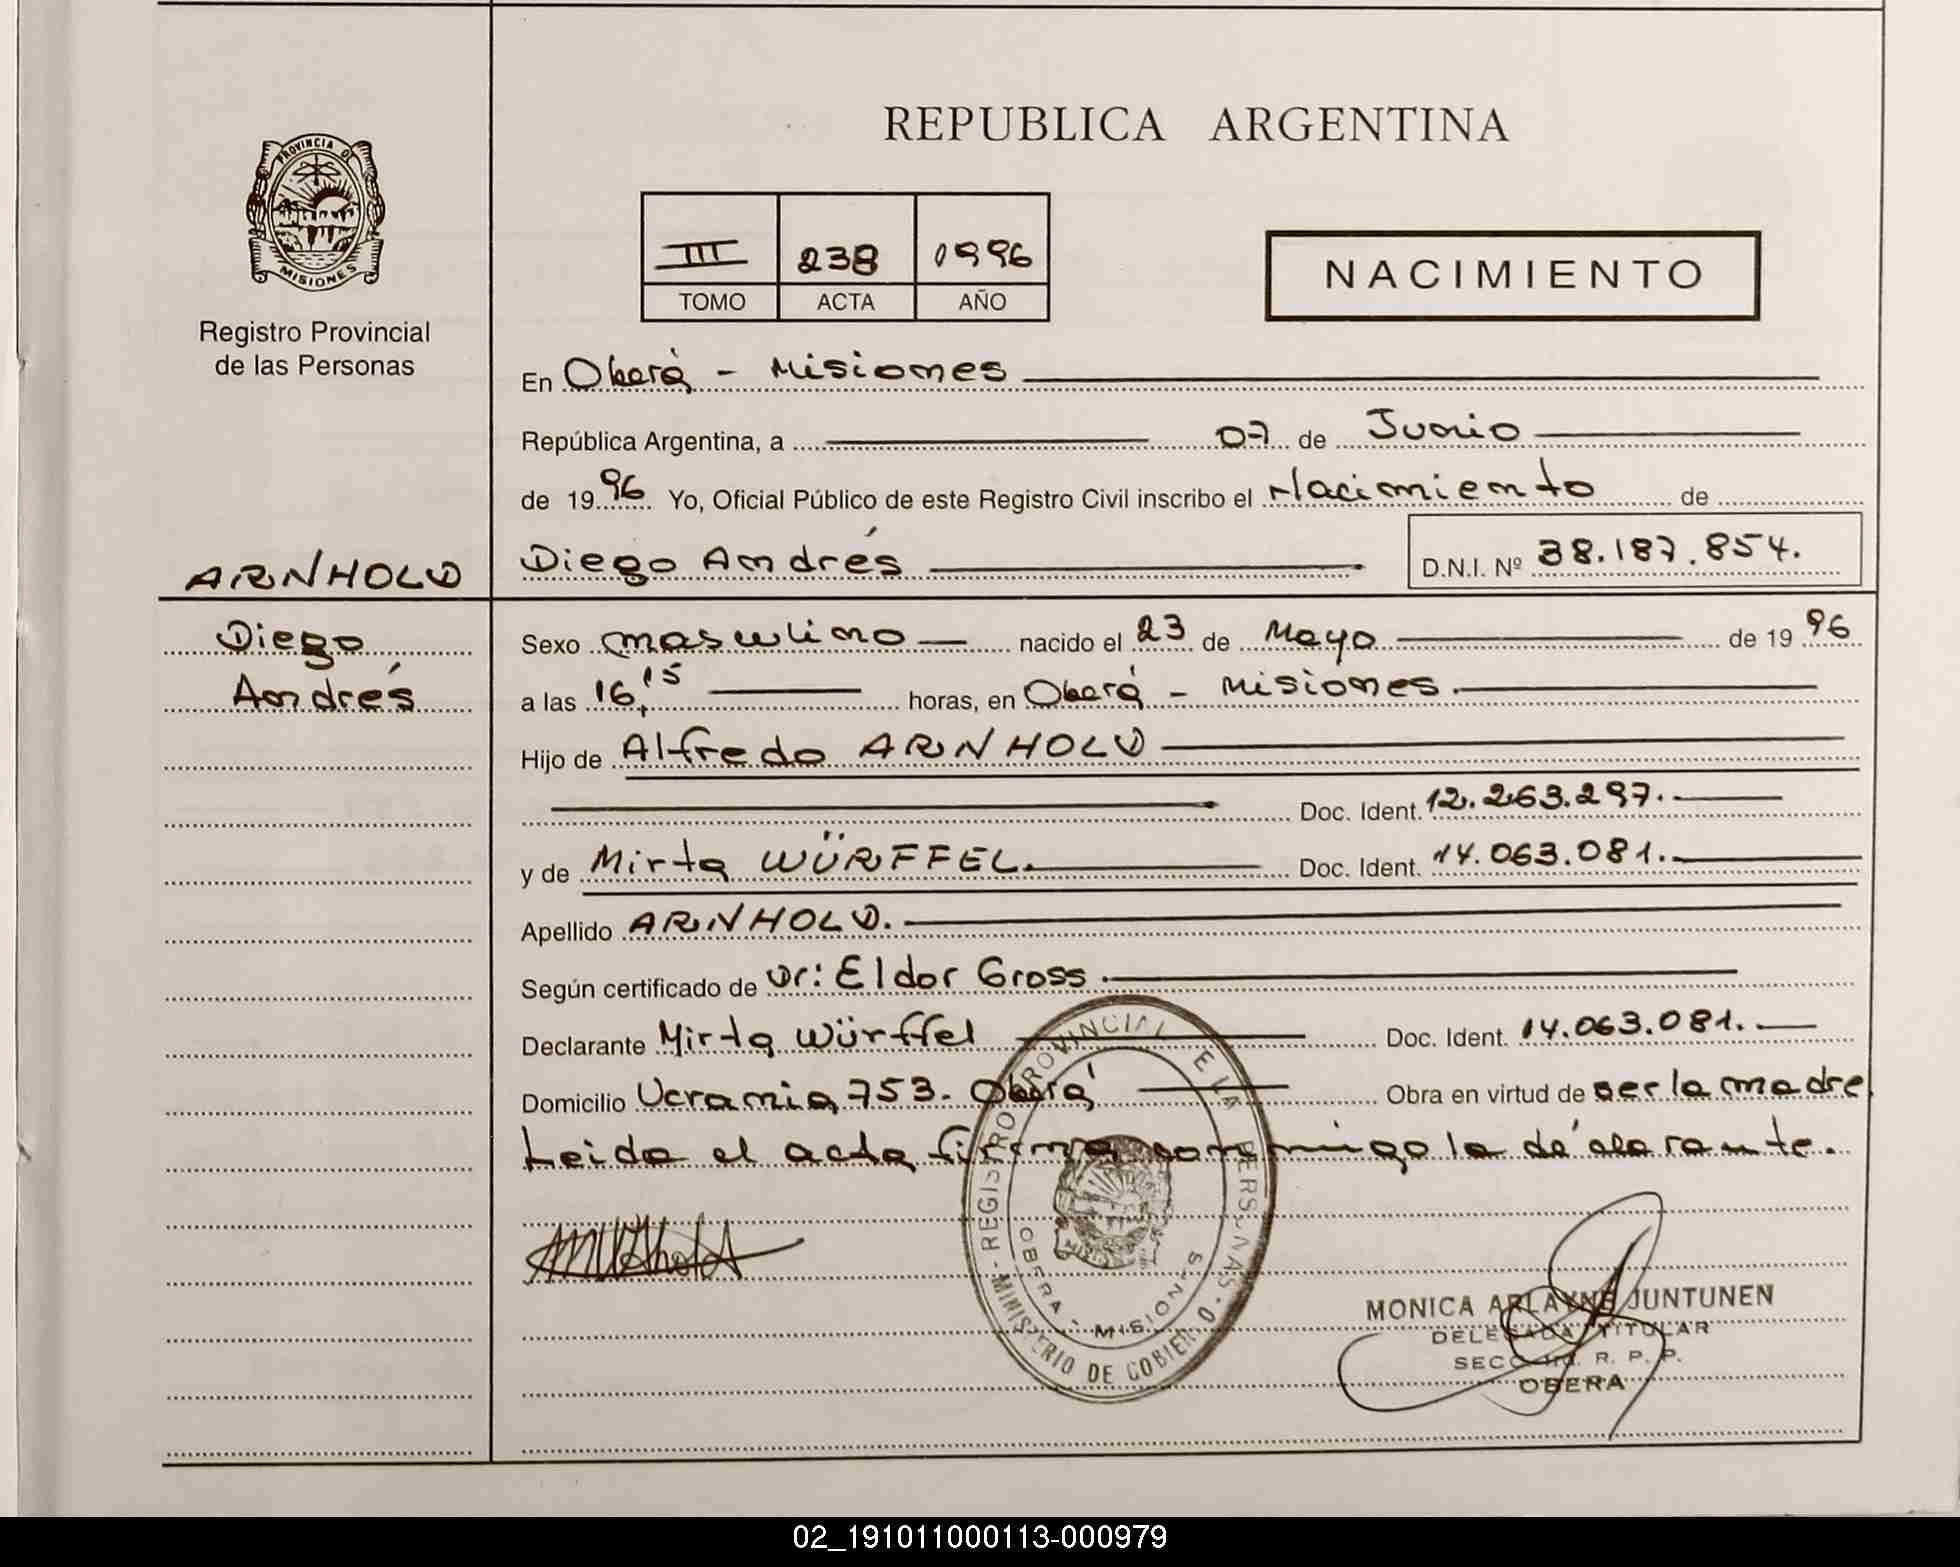 REPUBLICA ARGENTINA
PROVINCIA D
MISIONES
Registro Provincial
de las Personas
III 238 1996
TOMO ACTA AÑO
NACIMIENTO
En Oberá - Misiones
República Argentina, a 07 de Junio
de 1996 Yo, Oficial Público de este Registro Civil inscribo el Nacimiento de
ARNHOLD Diego Andrés D.N.I. Nº 38.187.854.
Diego Sexo masculino nacido el 23 de Mayo de 1996
Andrés a las 16,15 horas, en Oberá - Misiones.
Hijo de Alfredo ARNHOLD
Doc. Ident. 12.263.297.
y de Mirta WÜRFFEL. Doc. Ident. 14.063.081.
Apellido ARNHOLD.
Según certificado de Dr: Eldor Gross.
Declarante Mirta Würffel Doc. Ident. 14.063.081.
Domicilio Ucrania 753. Oberá Obra en virtud de ser la madre
Leida el acta firma conmigo la declarante.
REGISTRO PROVINCIAL E LA PERS NAS
MINISTERIO DE GOBIER O
OBERA - MISIONES
MONICA ARLAYNE JUNTUNEN
DELEGADA TITULAR
SECC R. P. P.
OBERA
02_191011000113-000979